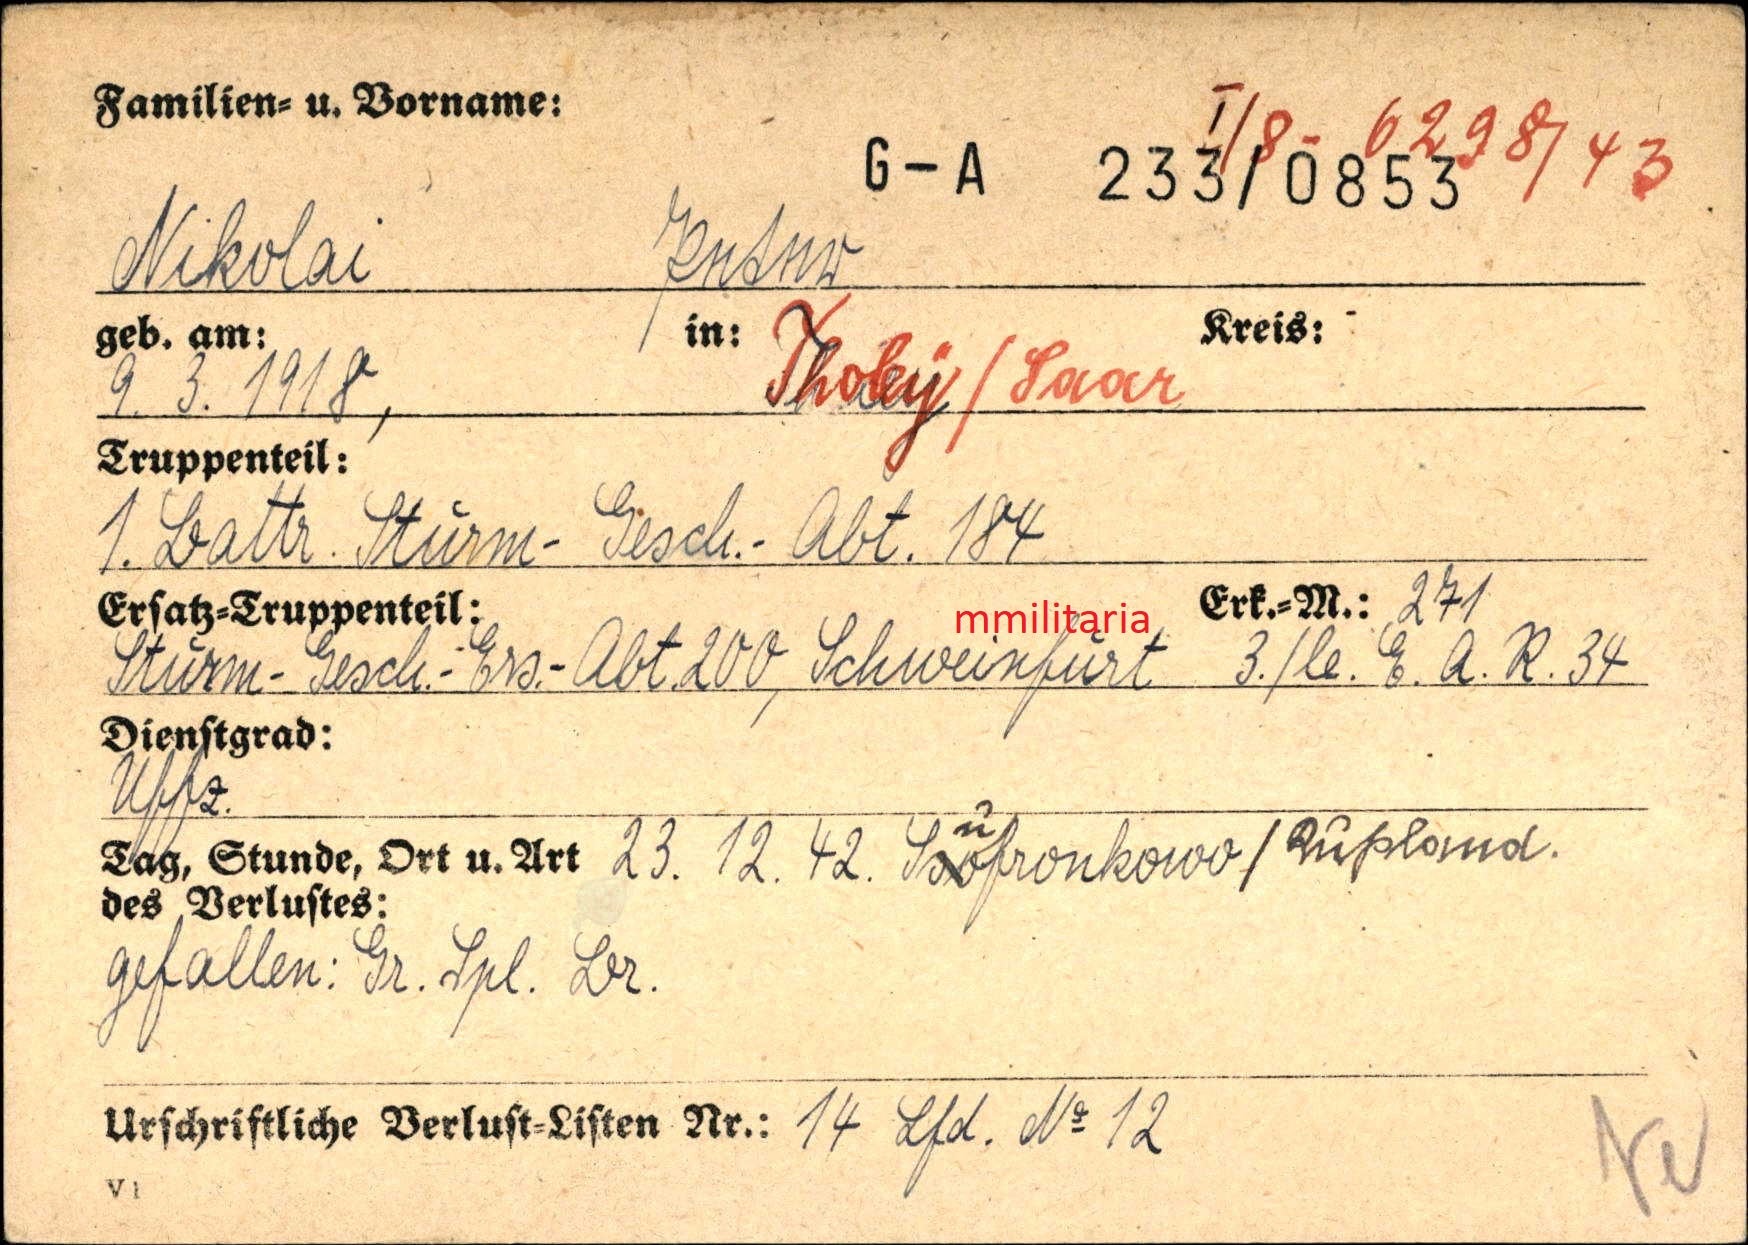 Familien= u. Vorname:
I/8- 6298/43
G-A 233/0853
Nikolai
geb. am: in: Kreis: -
9. 3. 1918, Tholey / Saar
Truppenteil:
1. Battr. Sturm- Gesch.- Abt. 184
Ersatz=Truppenteil: Erk.=M.: 271
mmilitaria
Sturm- Gesch.- Ers.- Abt. 200, Schweinfurt 3./le. E. A. R. 34
Dienstgrad:
Uffz.
Tag, Stunde, Ort u. Art 23. 12. 42. Ssufronkowo / Rußland.
des Verlustes:
gefallen: Gr. Spl. Br.
Urschriftliche Verlust=Listen Nr.: 14 Lfd. № 12
V 1